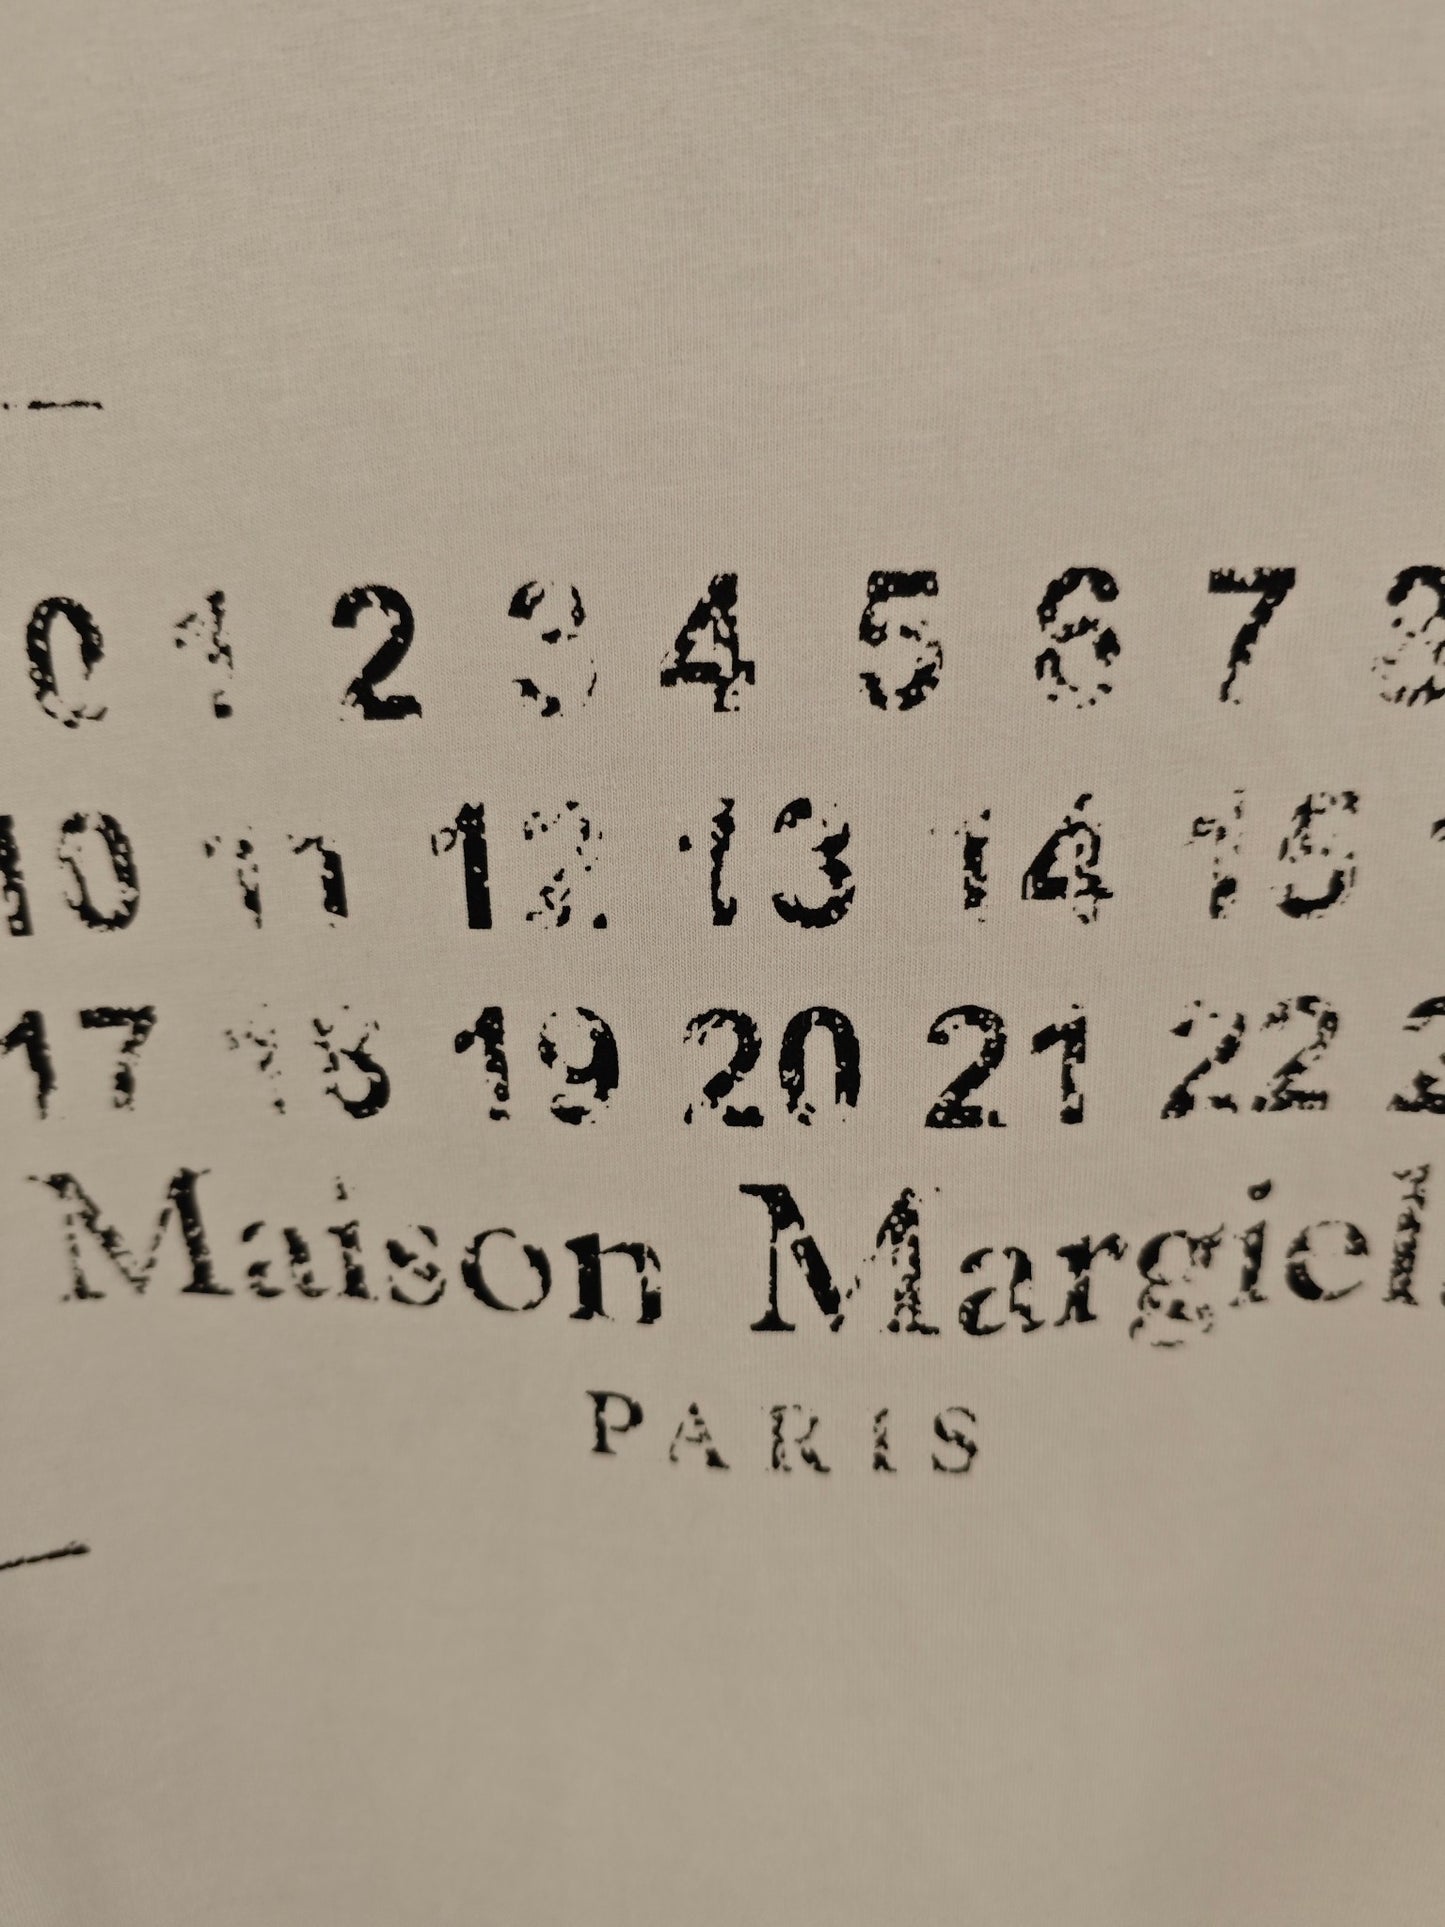 0 1 2 3 4 5 6 7 8
10 11 12 13 14 15
17 18 19 20 21 22 2
Maison Margiel
PARIS